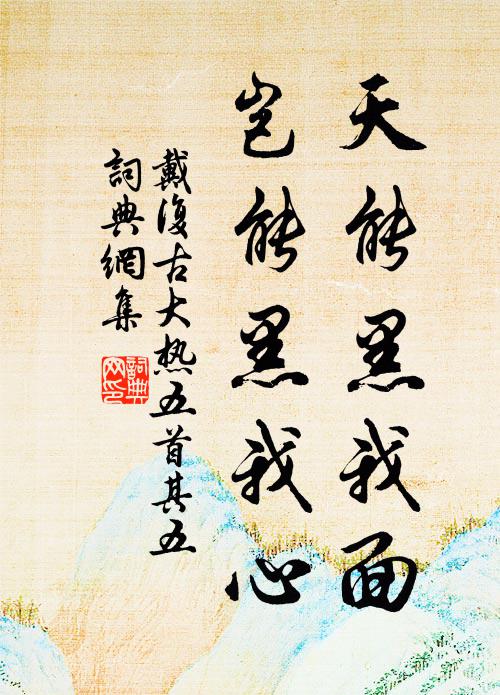 天能黑我面
岂能黑我心
戴復古大热五首其五
詞典網集
詞典网印